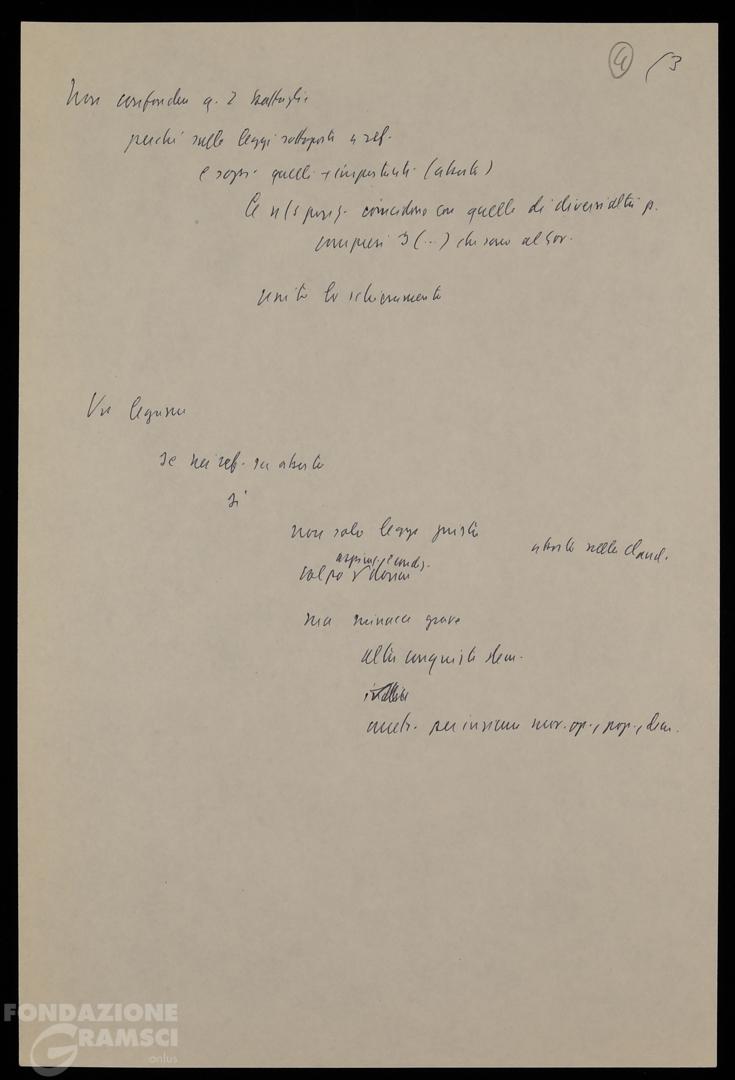 4 / 3
Non confondere q. 2 battaglie
perché sulle leggi sottoposte a ref.
e sopr. quelle + importanti (aborto)
le ns posiz. coincidono con quelle di diversi altri p.
compresi 3 (...) che sono al gov.
unità lo schieramento
legame
se nei ref. su aborto
sì
non solo legge giusta
aborto nella cland.
aspiraz. e condiz.
colpo donna
ma minaccia grave
altre conquiste dem.
anche per insieme mov. op., pop., dem.
FONDAZIONE
GRAMSCI
onlus